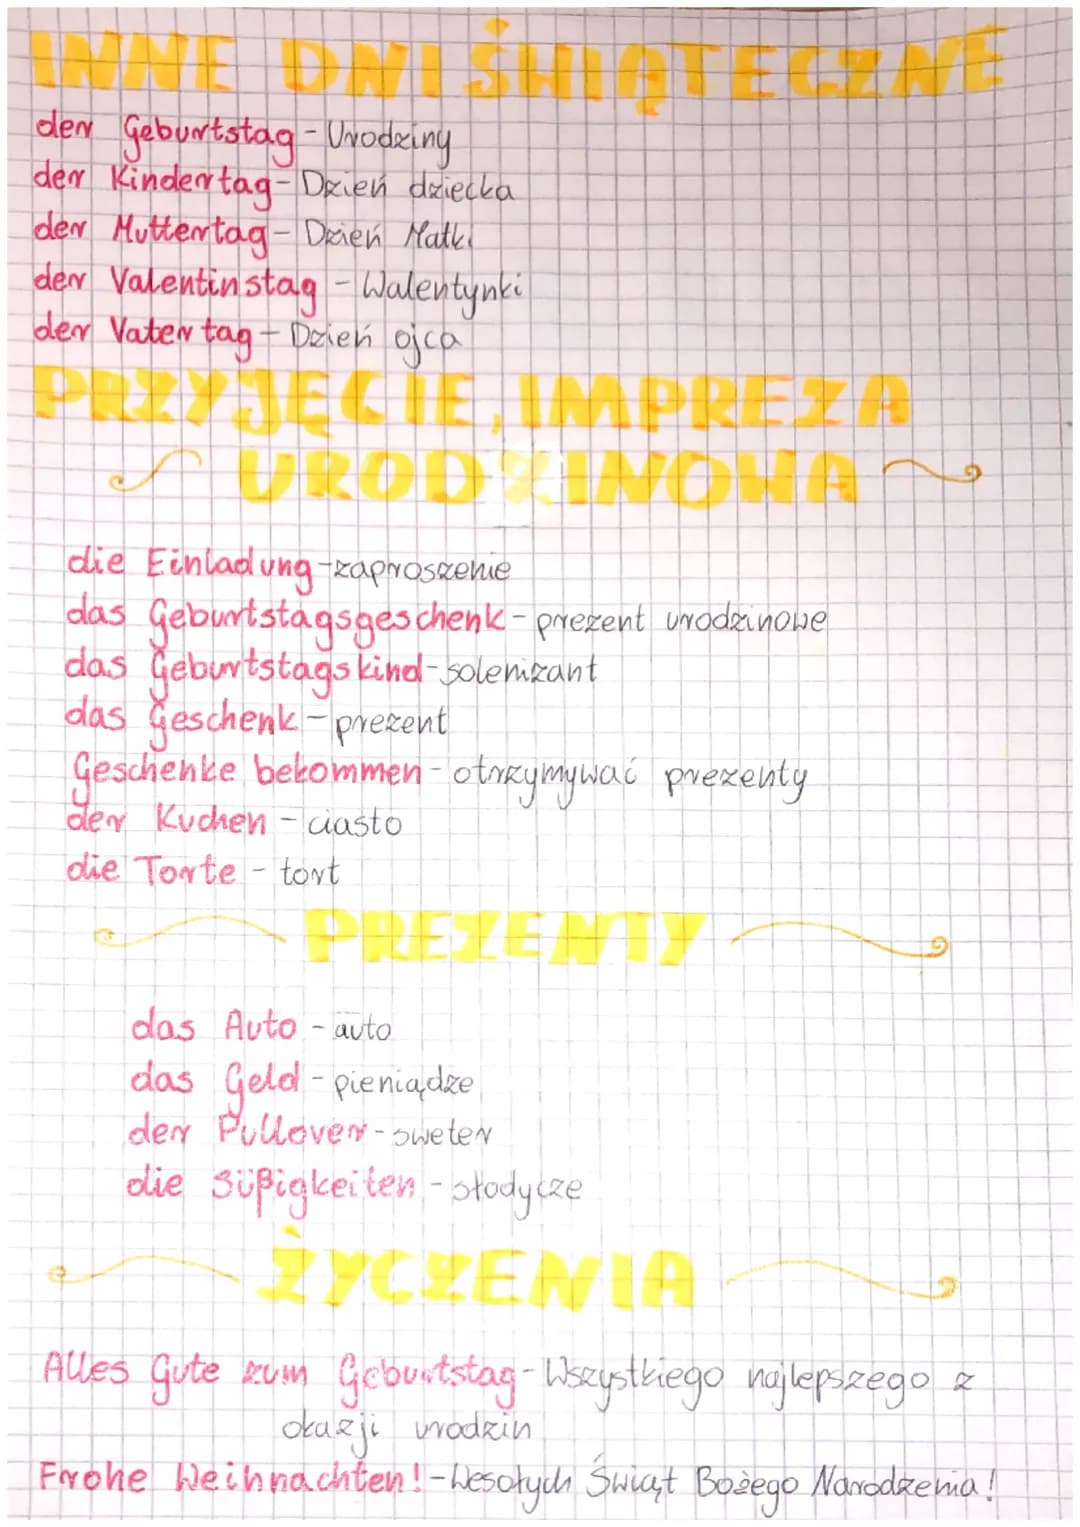 INNE DNI ŚWIĄTECZNE
der Geburtstag - Urodziny
der Kindertag - Dzień dziecka
der Muttertag - Dzień Matki
der Valentinstag - Walentynki
der Vatertag - Dzień ojca
PRZYJĘCIE, IMPREZA
URODZINOWA
die Einladung - zaproszenie
das Geburtstagsgeschenk - prezent urodzinowe
das Geburtstagskind - solenizant
das Geschenk - prezent
Geschenke bekommen - otrzymywać prezenty
der Kuchen - ciasto
die Torte - tort
PREZENTY
das Auto - auto
das Geld - pieniądze
der Pullover - sweter
die Süßigkeiten - słodycze
ŻYCZENIA
Alles Gute zum Geburtstag - Wszystkiego najlepszego z
okazji urodzin
Frohe Weihnachten! - Wesołych Świąt Bożego Narodzenia!